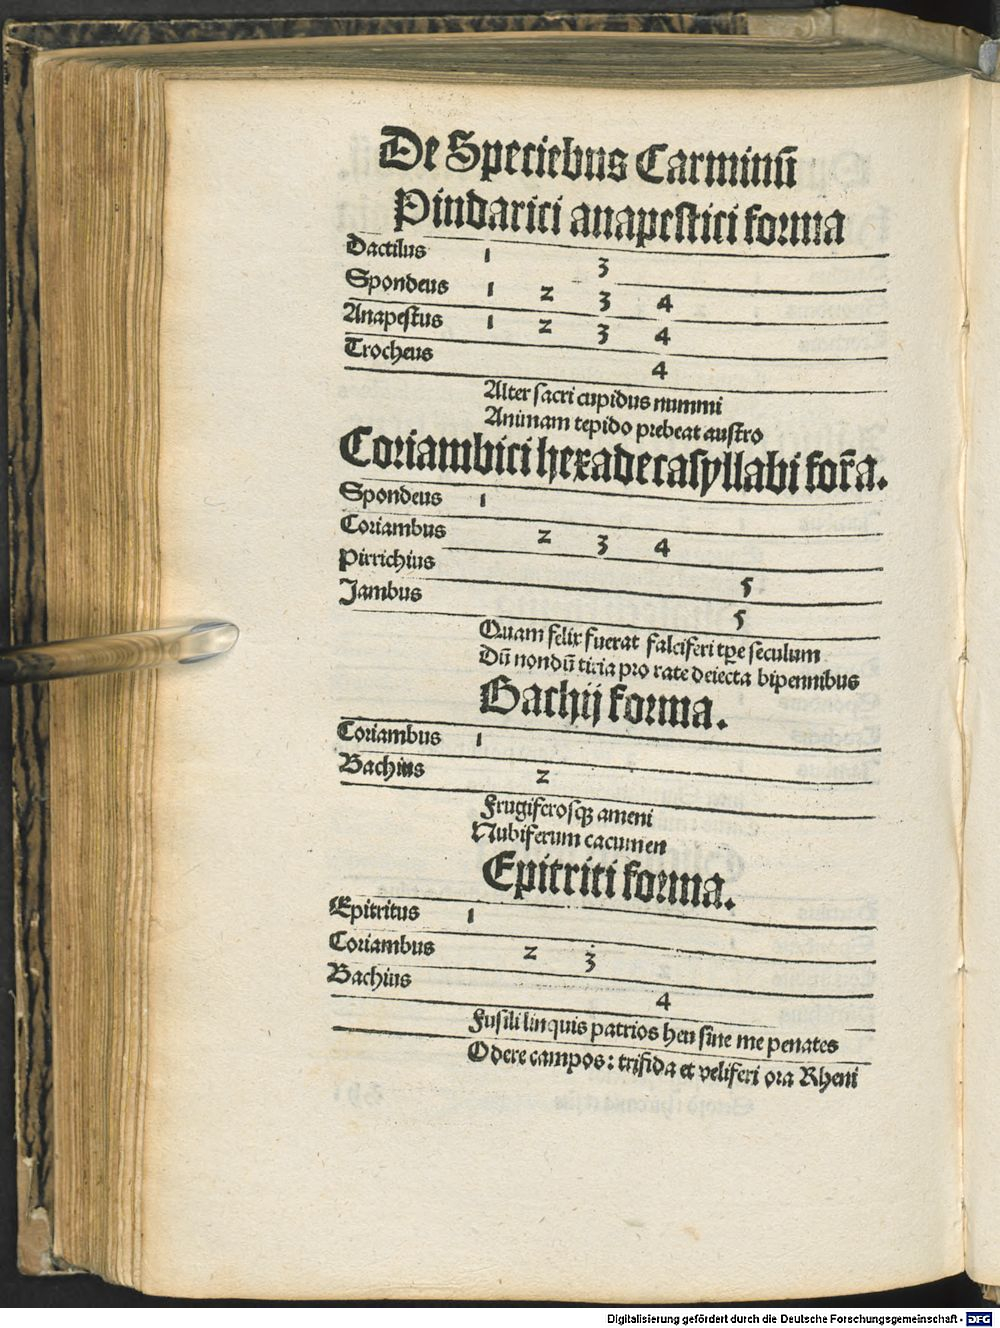 De Speciebus Carminũ
Pindarici anapestici forma
Dactilus 1 3
Spondeus 1 2 3 4
Anapestus 1 2 3 4
Trocheus 4
Alter sacri cupidus nummi
Animam tepido prebeat austro
Coriambici hexadecasyllabi for̃a.
Spondeus 1
Coriambus 2 3 4
Pirrichius 5
Jambus 5
Quam felix fuerat falciferi tꝑe seculum
Dũ nondũ tiria pro rate deiecta bipennibus
Bachij forma.
Coriambus 1
Bachius 2
Frugiferosqꝫ ameni
Nubiferum cacumen
Epitriti forma.
Epitritus 1
Coriambus 2 3
Bachius 4
Fusili linquis patrios heu sine me penates
Odere campos: trifida et veliferi ora Rheni
Digitalisierung gefördert durch die Deutsche Forschungsgemeinschaft - DFG